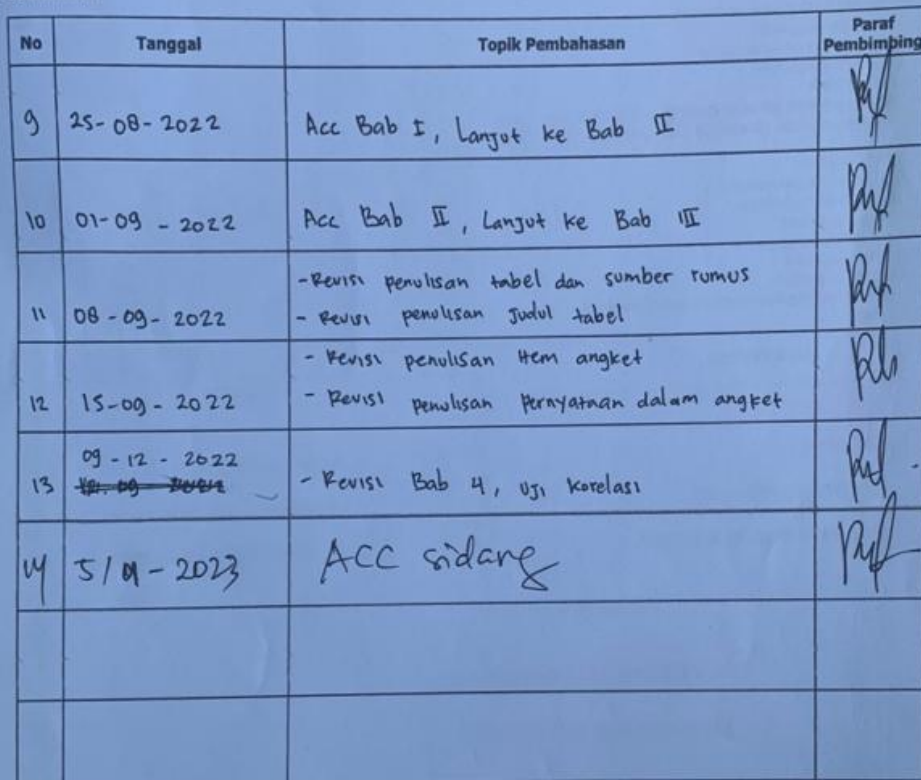 No Tanggal Topik Pembahasan Paraf Pembimbing
9 25-08-2022 Acc Bab I, Lanjut ke Bab II
10 01-09-2022 Acc Bab II, Lanjut ke Bab III
-Revisi penulisan tabel dan sumber rumus
11 08-09-2022 - Revisi penulisan Judul tabel
- Revisi penulisan Item angket
12 15-09-2022 - Revisi penulisan Pernyataan dalam angket
09-12-2022
13 - Revisi Bab 4, Uji Korelasi
14 ACC sidang